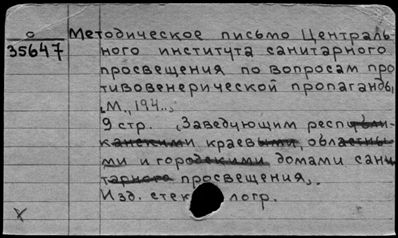 о
35647
Методическое письмо Централь-
ного института санитарного
просвещения по вопросам про
тивовенерической пропаганды,
М., 194..,
9 стр. „Заведующим республи-
канскими краевыми, областны-
ми и городскими домами сани
тарного просвещения„.
Изд. стек логр.